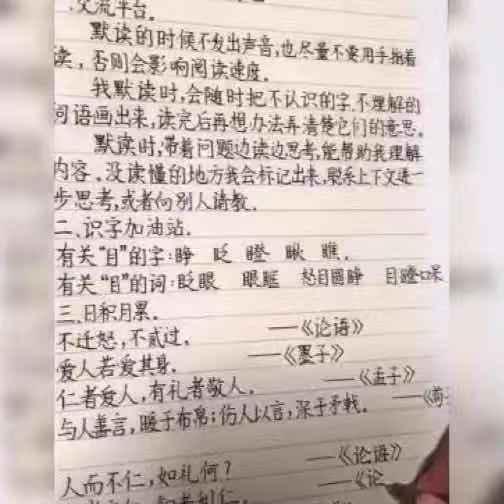 .交流平台。
默读的时候不发出声音,也尽量不要用手指着
读,否则会影响阅读速度。
我默读时,会随时把不认识的字、不理解的
词语画出来,读完后再想办法弄清楚它们的意思。
默读时,带着问题边读边思考,能帮助我理解
内容。没读懂的地方我会标记出来,联系上下文进一
步思考,或者向别人请教。
二、识字加油站。
有关“目”的字:睁 眨 瞪 瞅 瞧。
有关“目”的词:眨眼 眼眶 怒目圆睁 目瞪口呆
三、日积月累。
不迁怒,不贰过。 ——《论语》
爱人若爱其身。 ——《墨子》
仁者爱人,有礼者敬人。 ——《孟子》
与人善言,暖于布帛;伤人以言,深于矛戟。 ——《荀
人而不仁,如礼何? ——《论语》
——《论